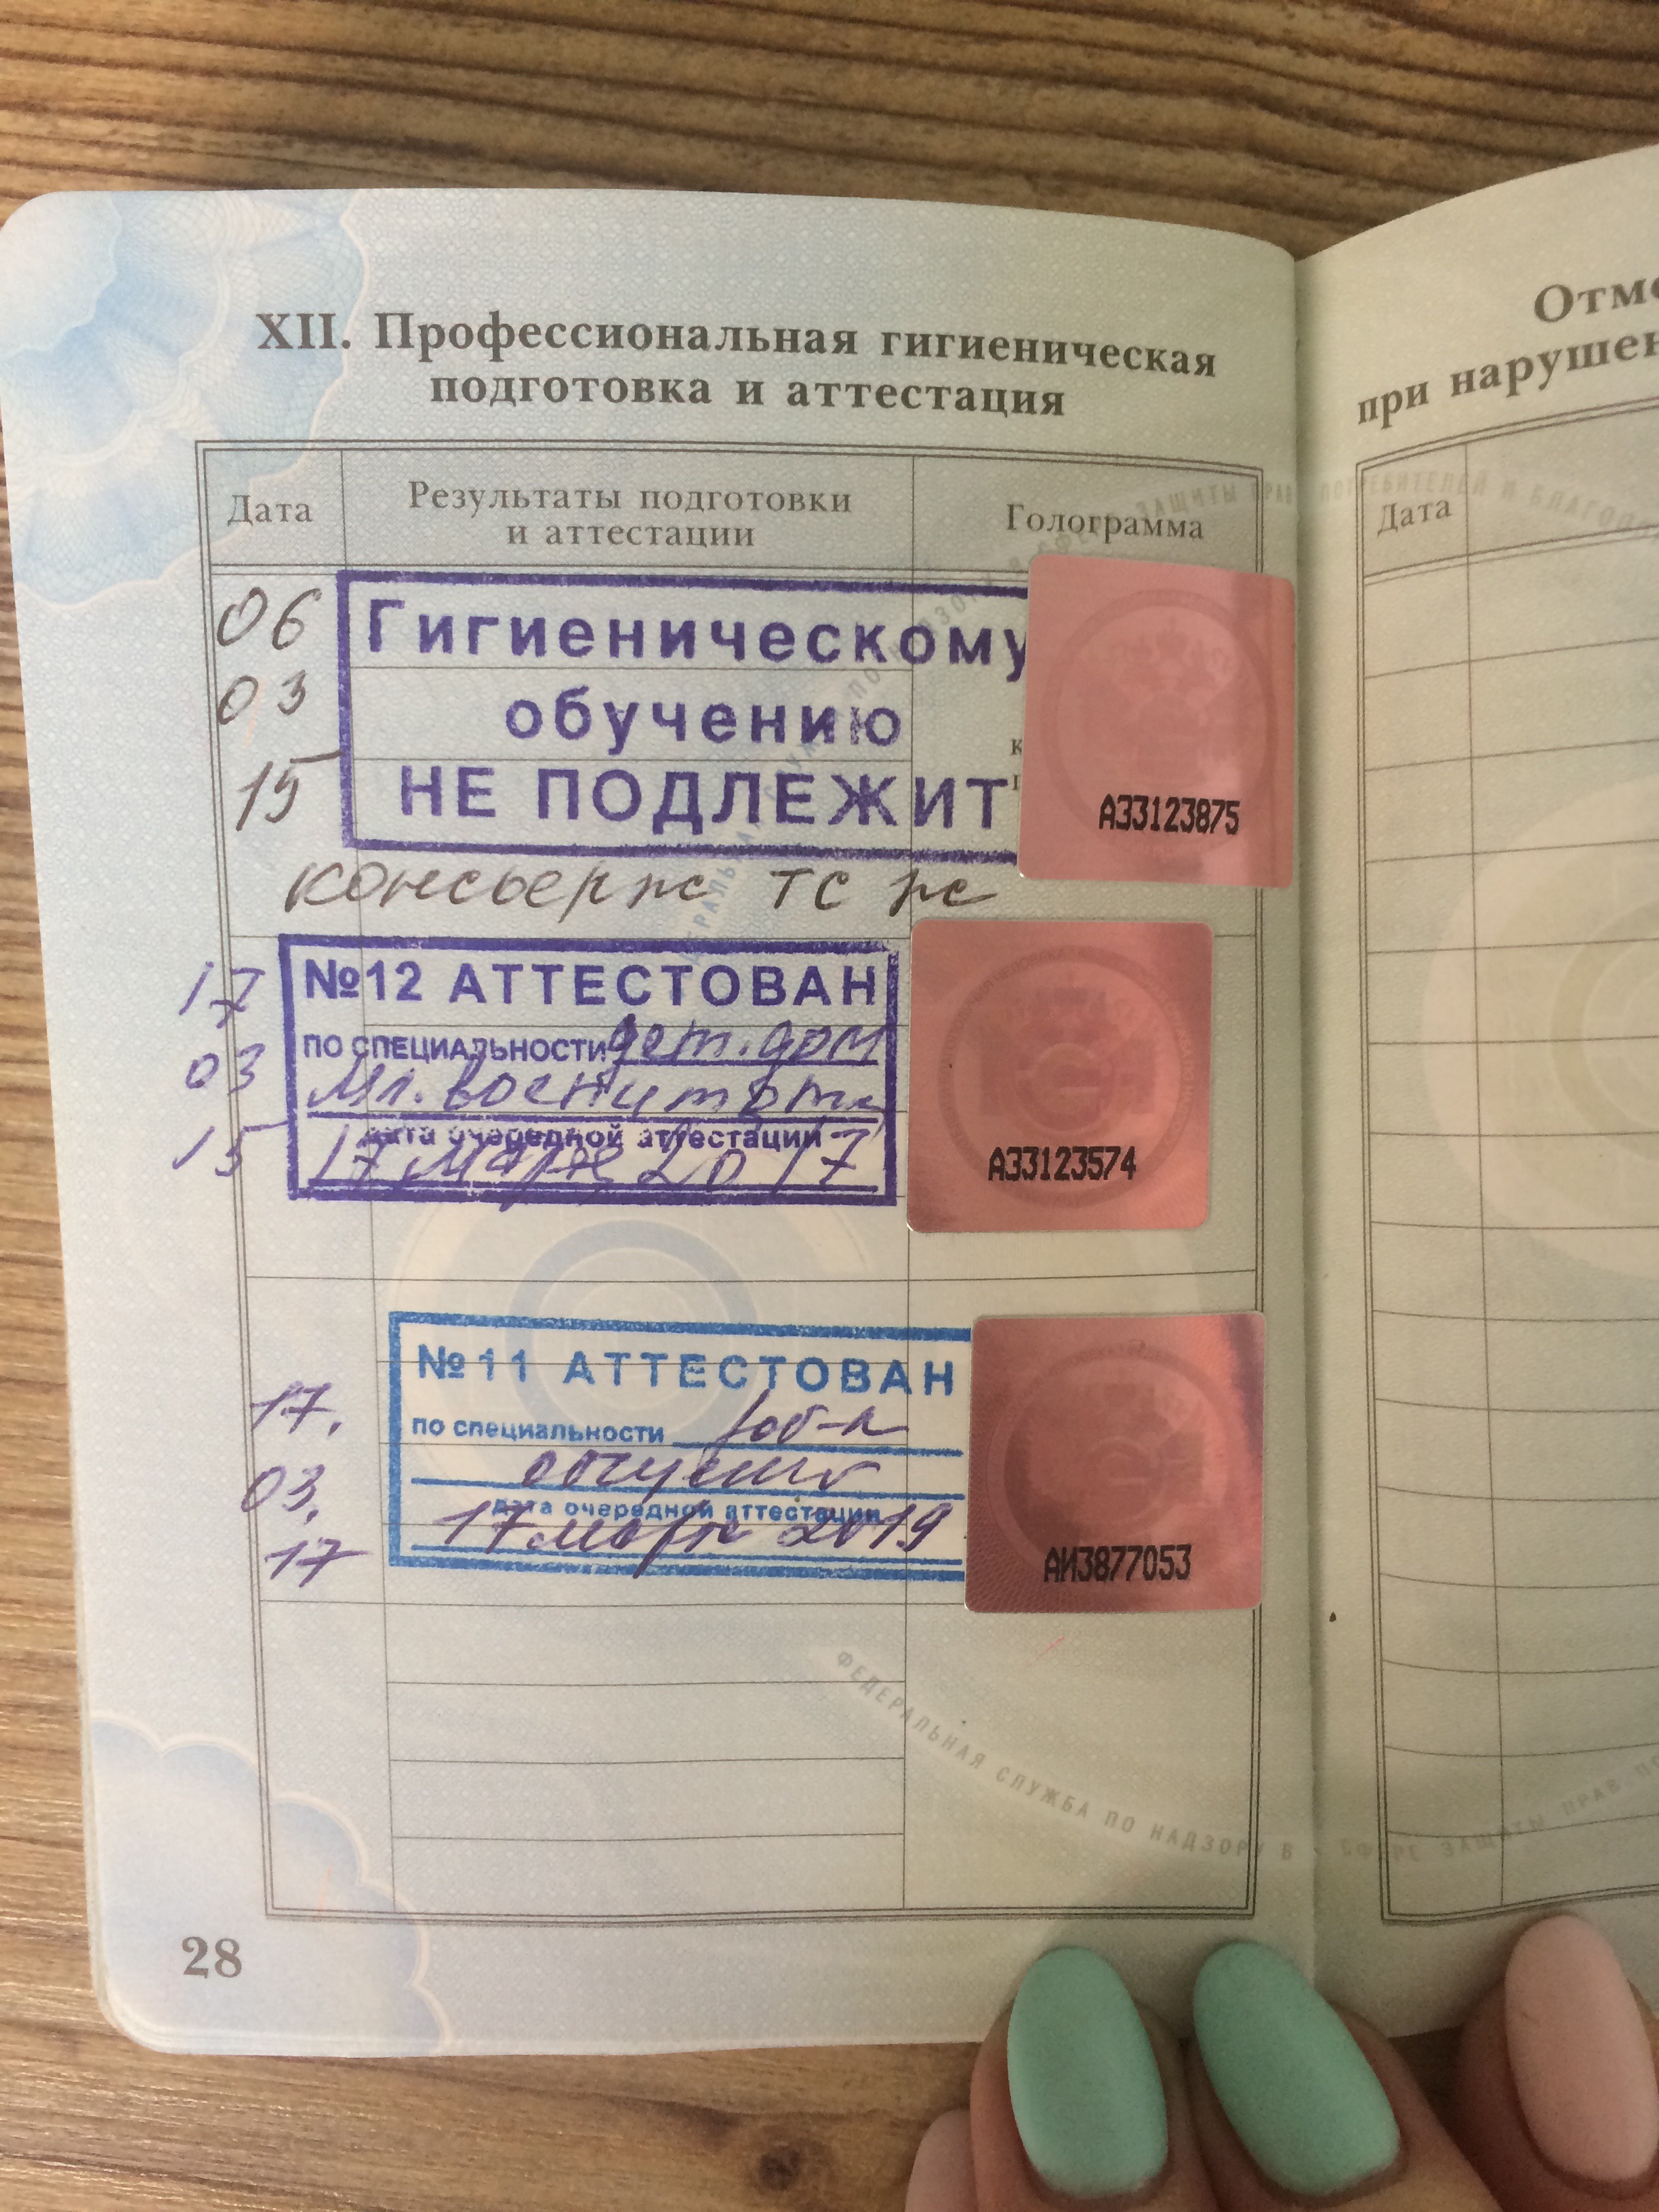 XII. Профессиональная гигиеническая
подготовка и аттестация
Дата
Результаты подготовки
и аттестации
Голограмма
06
03
15
Гигиеническому
обучению
НЕ ПОДЛЕЖИТ
А33123875
консьерж ТСЖ
17
03
15
№12 АТТЕСТОВАН
ПО СПЕЦИАЛЬНОСТИ дет. дом
мл. воспитат
дата очередной аттестации
17 марта 2017
А33123574
17.
03.
17
№11 АТТЕСТОВАН
по специальности
дата очередной аттестации
17 марта 2019
АИ3877053
ФЕДЕРАЛЬНАЯ СЛУЖБА ПО НАДЗОРУ В СФЕРЕ ЗАЩИТЫ ПРАВ
28
Отме
при нарушен
Дата